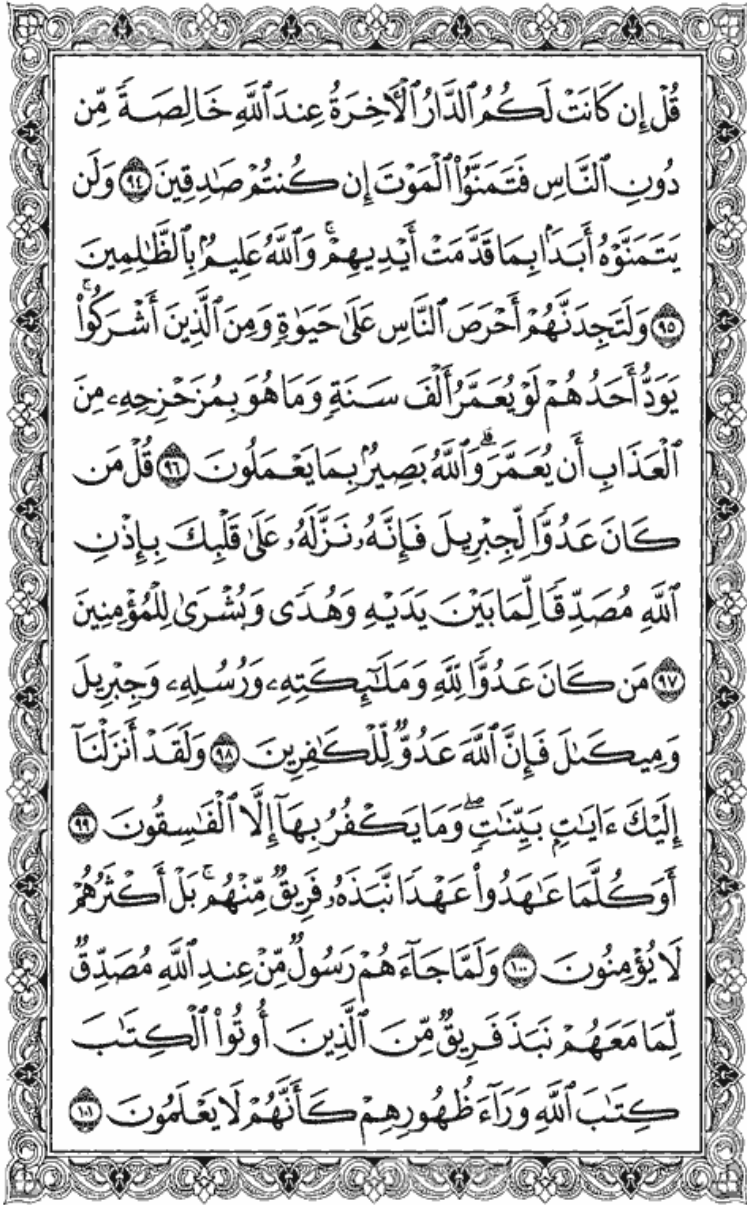 قُلْ إِن كَانَتْ لَكُمُ ٱلدَّارُ ٱلْأَخِرَةُ عِندَ ٱللَّهِ خَالِصَةً مِّن
دُونِ ٱلنَّاسِ فَتَمَنَّوُا۟ ٱلْمَوْتَ إِن كُنتُمْ صَادِقِينَ ٩٤ وَلَن
يَتَمَنَّوْهُ أَبَدًۢا بِمَا قَدَّمَتْ أَيْدِيهِمْ ۚ وَٱللَّهُ عَلِيمٌۢ بِٱلظَّٰلِمِينَ
٩٥ وَلَتَجِدَنَّهُمْ أَحْرَصَ ٱلنَّاسِ عَلَىٰ حَيَوٰةٍ وَمِنَ ٱلَّذِينَ أَشْرَكُوا۟ ۚ
يَوَدُّ أَحَدُهُمْ لَوْ يُعَمَّرُ أَلْفَ سَنَةٍ وَمَا هُوَ بِمُزَحْزِحِهِۦ مِنَ
ٱلْعَذَابِ أَن يُعَمَّرَ ۗ وَٱللَّهُ بَصِيرٌۢ بِمَا يَعْمَلُونَ ٩٦ قُلْ مَن
كَانَ عَدُوًّا لِّجِبْرِيلَ فَإِنَّهُۥ نَزَّلَهُۥ عَلَىٰ قَلْبِكَ بِإِذْنِ
ٱللَّهِ مُصَدِّقًا لِّمَا بَيْنَ يَدَيْهِ وَهُدًى وَبُشْرَىٰ لِلْمُؤْمِنِينَ
٩٧ مَن كَانَ عَدُوًّا لِّلَّهِ وَمَلَٰٓئِكَتِهِۦ وَرُسُلِهِۦ وَجِبْرِيلَ
وَمِيكَىٰلَ فَإِنَّ ٱللَّهَ عَدُوٌّ لِّلْكَٰفِرِينَ ٩٨ وَلَقَدْ أَنزَلْنَآ
إِلَيْكَ ءَايَٰتٍۭ بَيِّنَٰتٍ ۖ وَمَا يَكْفُرُ بِهَآ إِلَّا ٱلْفَٰسِقُونَ ٩٩
أَوَكُلَّمَا عَٰهَدُوا۟ عَهْدًا نَّبَذَهُۥ فَرِيقٌ مِّنْهُم ۚ بَلْ أَكْثَرُهُمْ
لَا يُؤْمِنُونَ ١٠٠ وَلَمَّا جَآءَهُمْ رَسُولٌ مِّنْ عِندِ ٱللَّهِ مُصَدِّقٌ
لِّمَا مَعَهُمْ نَبَذَ فَرِيقٌ مِّنَ ٱلَّذِينَ أُوتُوا۟ ٱلْكِتَٰبَ
كِتَٰبَ ٱللَّهِ وَرَآءَ ظُهُورِهِمْ كَأَنَّهُمْ لَا يَعْلَمُونَ ١٠١